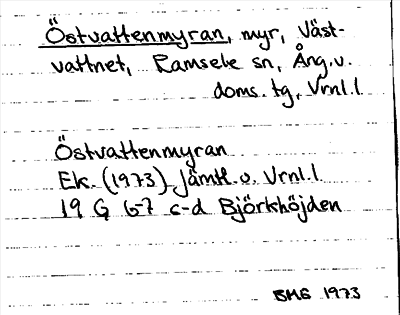 Östvattenmyran, myr, Väst-
vattnet, Ramsele sn, Ång.v.
doms. tg, Vrnl.l
Östvattenmyran
Ek. (1973) Jämtl. o. Vrnl.l.
19 G 6-7 c-d Björkhöjden
BMG 1973